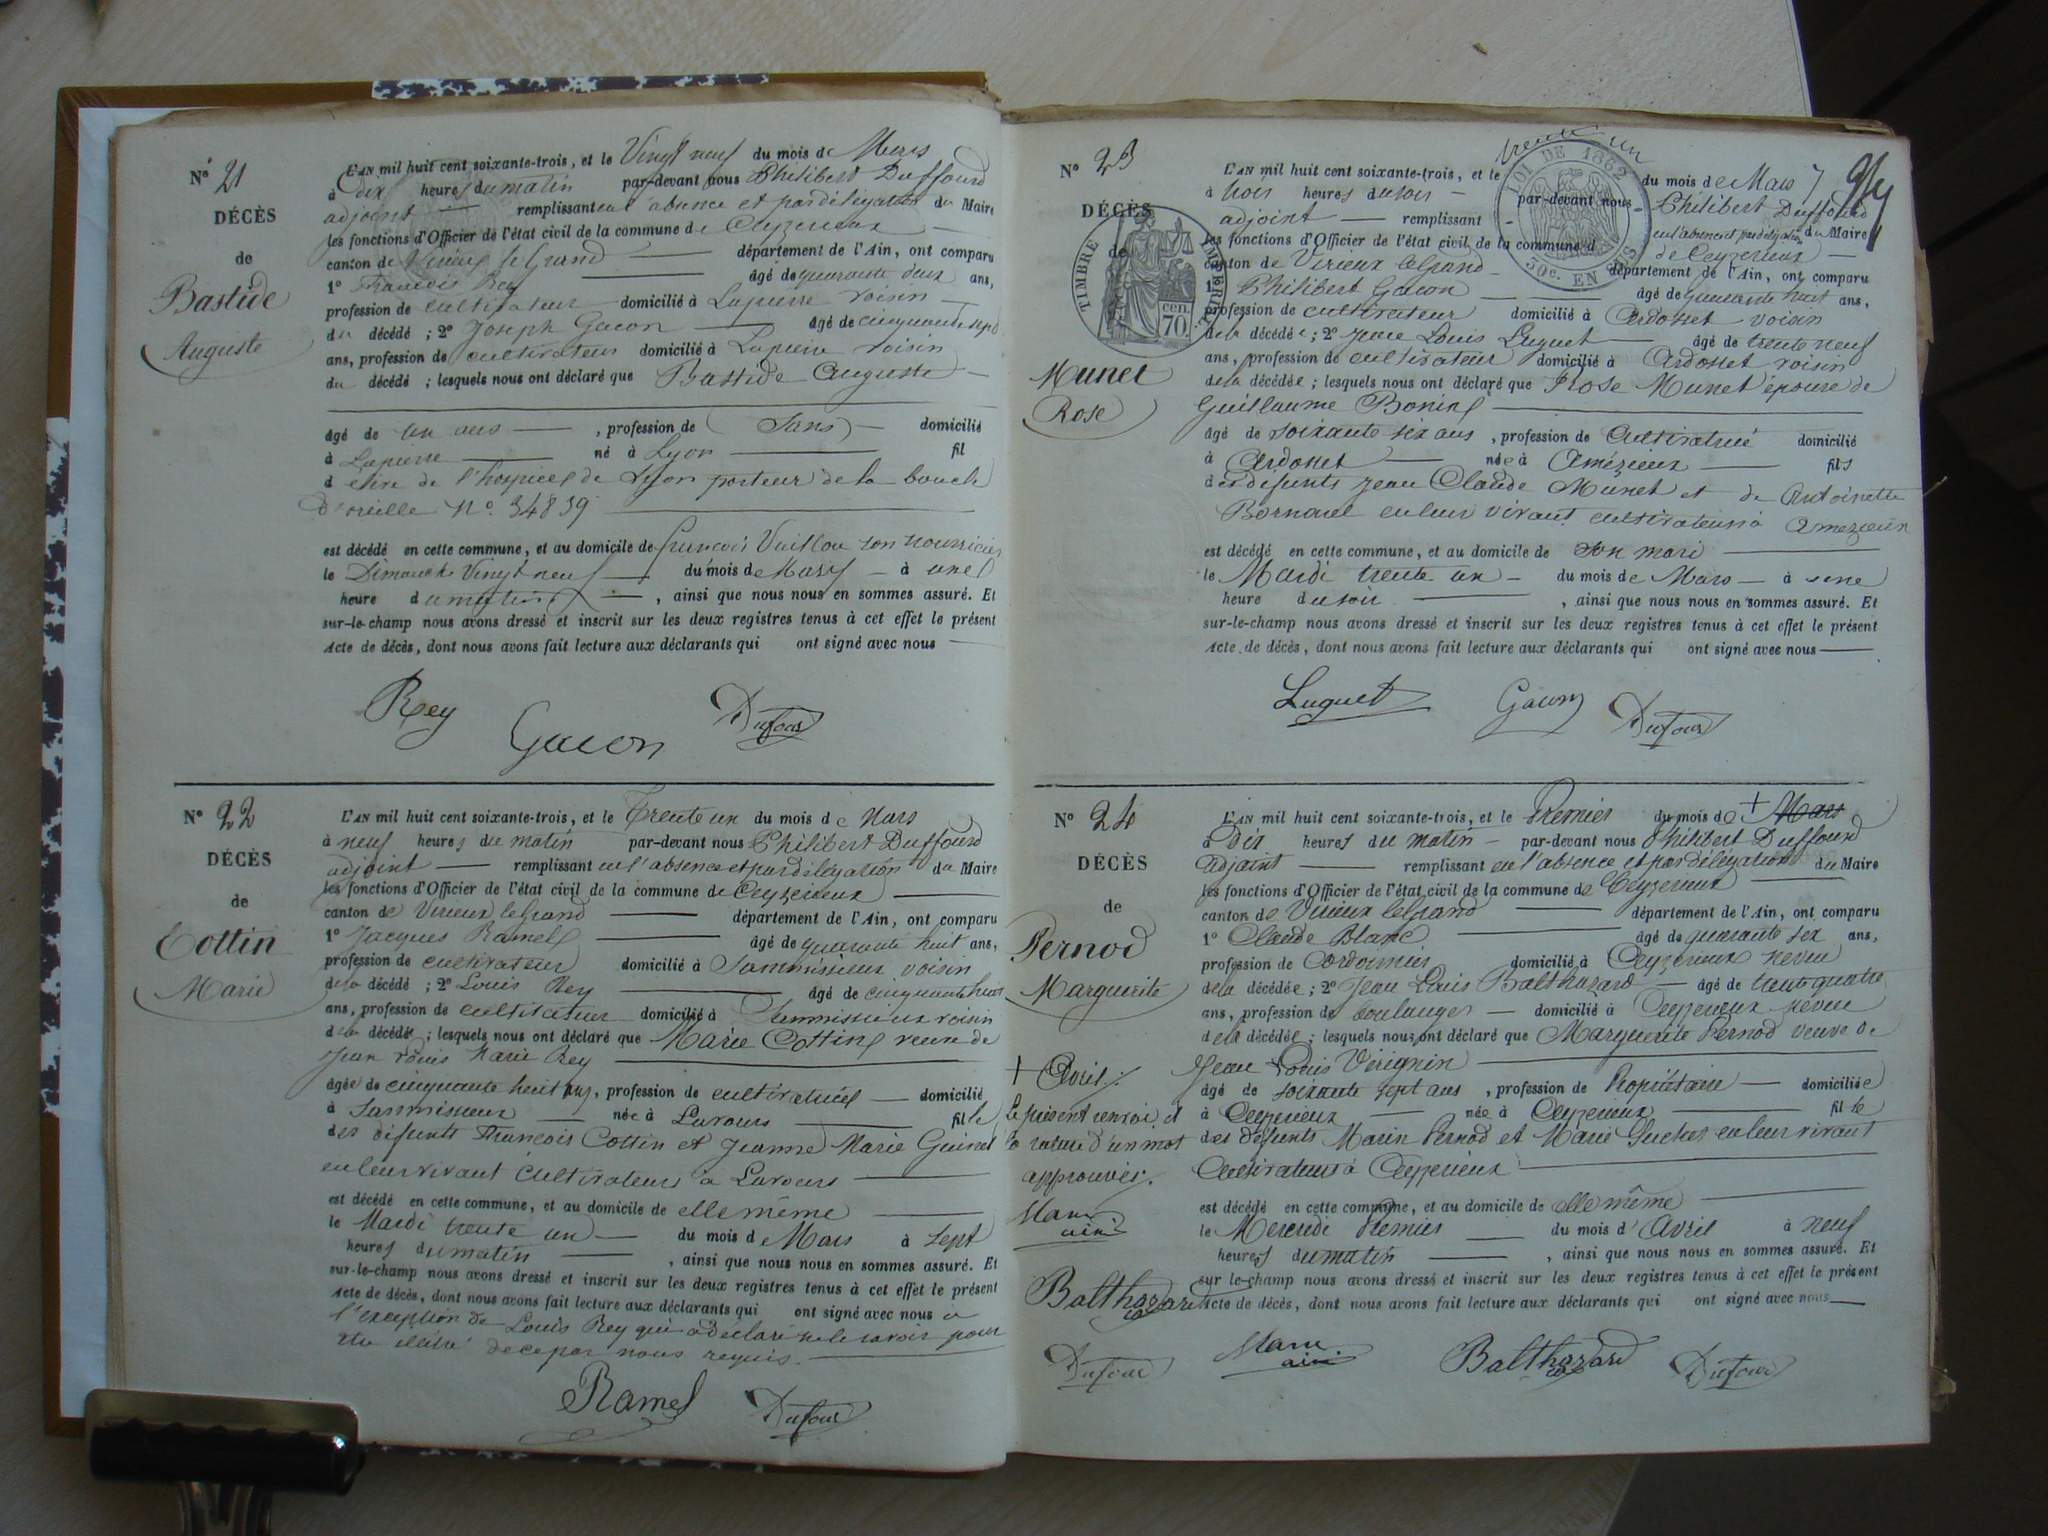 N° 21
DÉCÈS
de
Bastide
Auguste
L'AN mil huit cent soixante-trois, et le Vingt neuf du mois de Mars
à dix heures du matin par-devant nous Philibert Duffourd
adjoint remplissant en l'absence et par délégation du Maire
les fonctions d'Officier de l'état civil de la commune de Ceyzerieux
canton de Virieux le Grand département de l'Ain, ont comparu
1° François Rey âgé de quarante deux ans,
profession de cultivateur domicilié à Lapierre voisin
du décédé ; 2° Joseph Gacon âgé de cinquante sept
ans, profession de cultivateur domicilié à Lapierre voisin
du décédé ; lesquels nous ont déclaré que Bastide Auguste
âgé de un ans , profession de (Sans) domicilié
à Lapierre né à Lyon fil
d élève de l'hospice de Lyon porteur de la boucle
d'oreille N°. 34839
est décédé en cette commune, et au domicile de françois Vuillou son nourricier
le Dimanche Vingt neuf du mois de Mars à une
heure du matin , ainsi que nous nous en sommes assuré. Et
sur-le-champ nous avons dressé et inscrit sur les deux registres tenus à cet effet le présent
acte de décès, dont nous avons fait lecture aux déclarants qui ont signé avec nous
Rey Gacon Dufour
N° 22
DÉCÈS
de
Cottin
Marie
L'AN mil huit cent soixante-trois, et le Trente un du mois de Mars
à neuf heures du matin par-devant nous Philibert Duffourd
adjoint remplissant en l'absence et par délégation du Maire
les fonctions d'Officier de l'état civil de la commune de Ceyzerieux
canton de Virieux le Grand département de l'Ain, ont comparu
1° Jacques Ramel âgé de quarante huit ans,
profession de cultivateur domicilié à Sammissieux voisin
de la décédé ; 2° Louis Rey âgé de cinquante huit
ans, profession de cultivateur domicilié à Sammissieux voisin
de la décédée ; lesquels nous ont déclaré que Marie Cottin veuve de
Jean Louis Marie Rey
âgée de cinquante huit ans, profession de cultivatrice domicilié
à Sammissieux née à Lavours fille
des défunts François Cottin et Jeanne Marie Guinet
en leur vivant cultivateurs à Lavours
est décédé en cette commune, et au domicile de elle même
le Mardi trente un du mois de Mars à sept
heures du matin , ainsi que nous nous en sommes assuré. Et
sur-le-champ nous avons dressé et inscrit sur les deux registres tenus à cet effet le présent
acte de décès, dont nous avons fait lecture aux déclarants qui ont signé avec nous à
l'exception de Louis Rey qui a déclaré ne le savoir pour
être illitré de ce par nous requis.
Ramel Dufour
N° 23
DÉCÈS
de
Munet
Rose
TIMBRE IMPERIAL
70 cen.
LOI DE 1862
30c. EN SUS
L'AN mil huit cent soixante-trois, et le trente un du mois de Mars
à trois heures du soir par-devant nous Philibert Duffourd
adjoint remplissant en l'absence et par délégation du Maire
les fonctions d'Officier de l'état civil de la commune d de Ceyzerieux
canton de Virieux le Grand département de l'Ain, ont comparu
1° Philibert Gacon âgé de quarante huit ans,
profession de cultivateur domicilié à Ardosset voisin
de la décédée ; 2° Jean Louis Luguet âgé de trente neuf
ans, profession de cultivateur domicilié à Ardosset voisin
de la décédée ; lesquels nous ont déclaré que Rose Munet épouse de
Guillaume Bonin
âgé de soixante six ans , profession de Cultivatrice domicilié
à Ardosset née à Amézieux fils
des défunts Jean Claude Munet et de Antoinette
en leur vivant cultivateurs à Amezieux
est décédé en cette commune, et au domicile de son mari
le Mardi trente un du mois de Mars à une
heure du soir , ainsi que nous nous en sommes assuré. Et
sur-le-champ nous avons dressé et inscrit sur les deux registres tenus à cet effet le présent
acte de décès, dont nous avons fait lecture aux déclarants qui ont signé avec nous
Luguet Gacon Dufour
N° 24
DÉCÈS
de
Pernod
Marguerite
+ Avril
le présent renvoi et
la rature d'un mot
approuvés.
Balthazard
Dufour
L'AN mil huit cent soixante-trois, et le Premier du mois de + Mars
à Dix heures du matin par-devant nous Philibert Duffourd
adjoint remplissant en l'absence et par délégation du Maire
les fonctions d'Officier de l'état civil de la commune de Ceyzerieux
canton de Virieux le Grand département de l'Ain, ont comparu
1° Claude Blanc âgé de quarante six ans,
profession de Cordonnier domicilié à Ceyzerieux neveu
de la décédée ; 2° Jean Louis Balthazard âgé de trente quatre
ans, profession de boulanger domicilié à Ceyzerieux neveu
de la décédée ; lesquels nous ont déclaré que Marguerite Pernod veuve de
Jean Louis Vérignin
âgé de soixante sept ans , profession de Propriétaire domiciliée
à Ceyzerieux née à Ceyzerieux fille
des défunts Marin Pernod et Marie en leur vivant
Cultivateurs à Ceyzerieux
est décédé en cette commune, et au domicile de elle même
le Mercredi Premier du mois d'Avril à neuf
heures du matin , ainsi que nous nous en sommes assuré. Et
sur le-champ nous avons dressé et inscrit sur les deux registres tenus à cet effet le présent
acte de décès, dont nous avons fait lecture aux déclarants qui ont signé avec nous
Balthazard Dufour